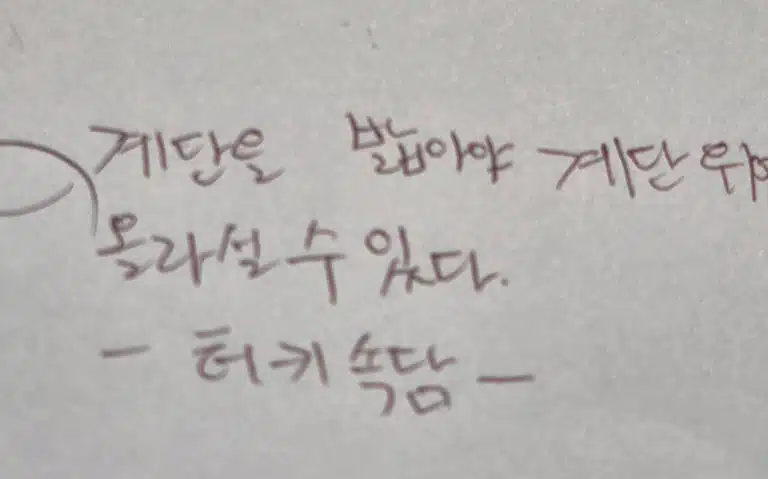 계단을 밟아야 계단 위에
올라설 수 있다.
- 터키 속담 -